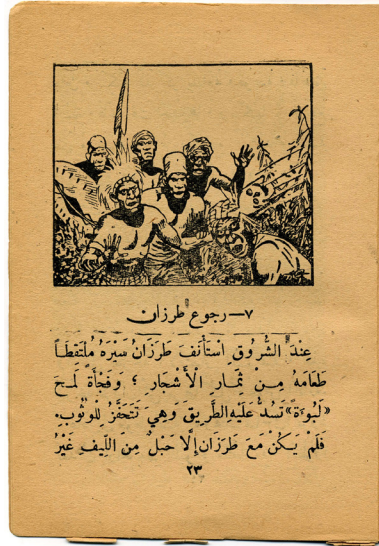 ٧ـ رجوع طرزان
عِنْدَ الشُّرُوقِ اسْتَأْنَفَ طَرَزَانُ سَيْرَهُ مُلْتَقِطًا
طَعَامَهُ مِنْ ثِمَارِ الْأَشْجَارِ ؛ وَفَجْأَةً لَمَحَ
«لَبُوءَةً» تَسُدُّ عَلَيْهِ الطَّرِيقَ وَهِيَ تَتَحَفَّزُ لِلْوُثُوبِ.
فَلَمْ يَكُنْ مَعَ طَرَزَان إِلَّا حَبْلٌ مِنَ اللِّيفِ غَيْرُ
٢٣